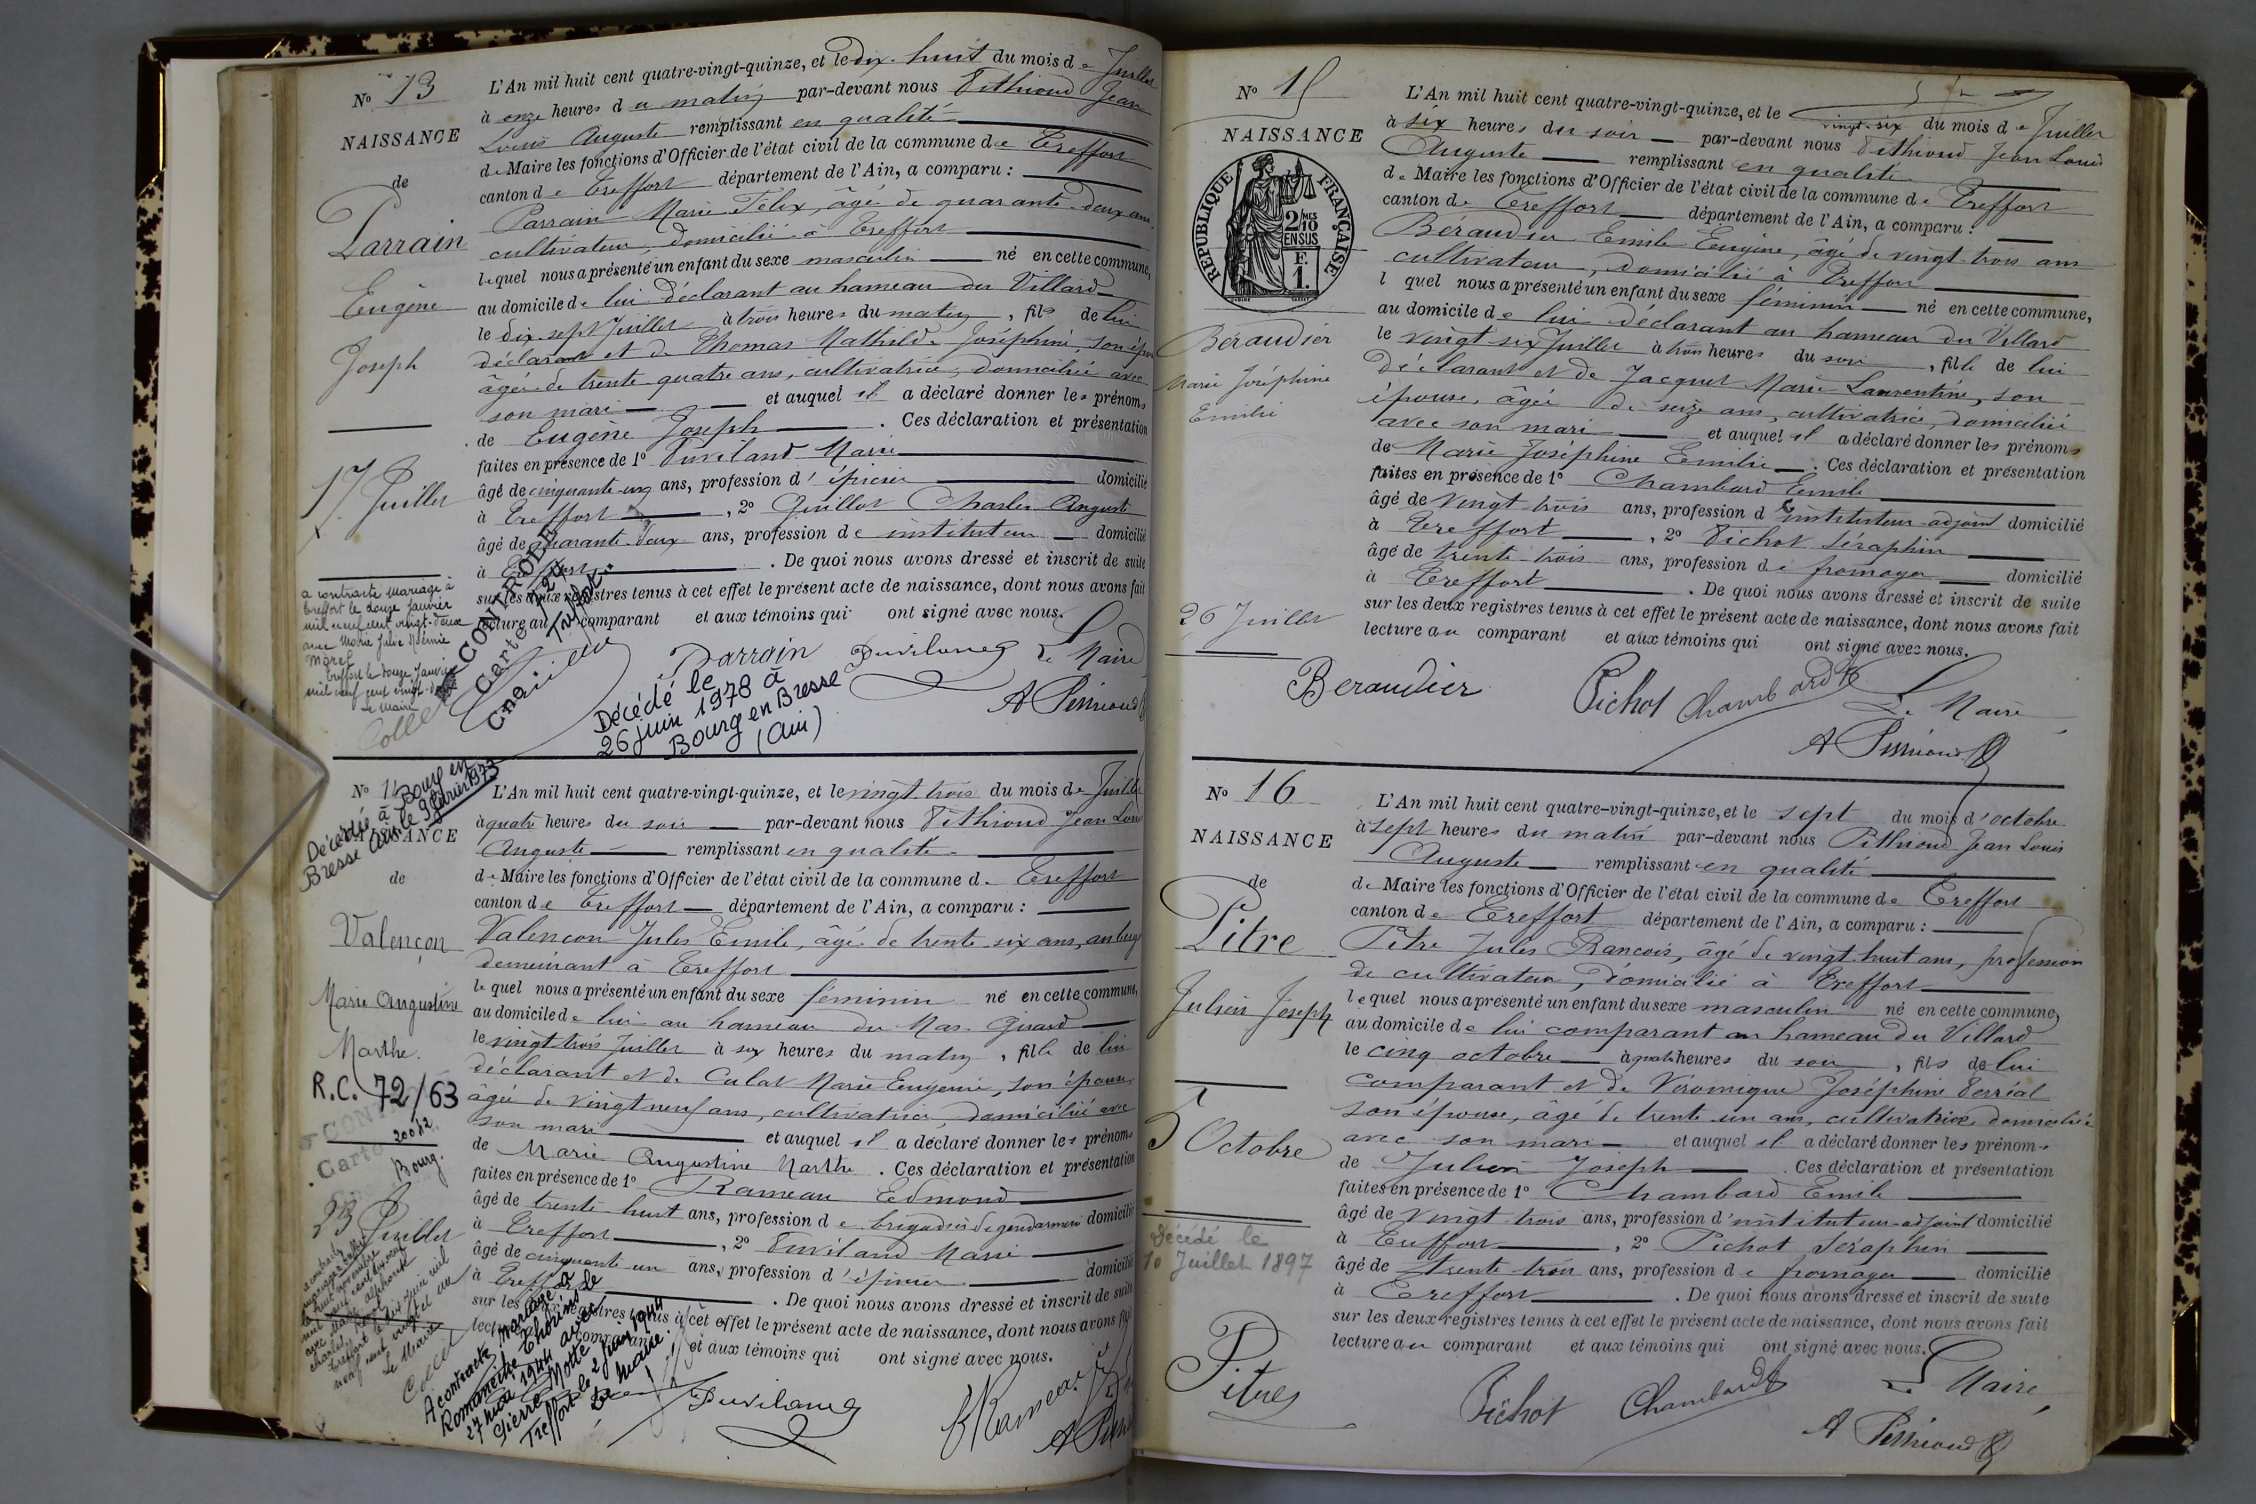 No 13
NAISSANCE
de
Parrain
Eugène
Joseph
17 Juillet
a contracté mariage à
Treffort le douze Janvier
mil neuf cent vingt-deux
avec Marie Julie Noémie
Morel
Treffort le douze Janvier
mil neuf cent vingt-deux
Le Maire
L'An mil huit cent quatre-vingt-quinze, et le dix-huit du mois de Juillet
à onze heures du matin par-devant nous Jean
Louis Auguste remplissant en qualité
de Maire les fonctions d'Officier de l'état civil de la commune de Treffort
canton de Treffort département de l'Ain, a comparu :
Parrain Marie Félix, âgé de quarante-deux ans,
cultivateur, domicilié à Treffort
lequel nous a présenté un enfant du sexe masculin né en cette commune,
au domicile de lui déclarant au hameau du Villard
le dix sept Juillet à trois heures du matin, fils de lui
déclarant et de Thomas Mathilde Joséphine, son épouse
âgée de trente quatre ans, cultivatrice, domiciliée avec
son mari et auquel il a déclaré donner les prénoms
de Eugène Joseph . Ces déclaration et présentation
faites en présence de 1° Marie
âgé de cinquante-un ans, profession d'épicier domicilié
à Treffort , 2° Guillot Charles Auguste
âgé de quarante-deux ans, profession de instituteur domicilié
à Treffort . De quoi nous avons dressé et inscrit de suite
sur les deux registres tenus à cet effet le présent acte de naissance, dont nous avons fait
lecture au comparant et aux témoins qui ont signé avec nous.
CONTROLE
Carte
Parrain
Le Maire
Décédé le
26 juin 1978 à
Bourg en Bresse
(Ain)
No 14
Décédée à Bourg en
Bresse
NAISSANCE
de
Valençon
Marie Augustine
Marthe.
R.C. 72/63
Carte
Bourg.
23 Juillet
L'An mil huit cent quatre-vingt-quinze, et le vingt-trois du mois de Juillet
à quatre heures du soir par-devant nous Jean Louis
Auguste remplissant en qualité
de Maire les fonctions d'Officier de l'état civil de la commune de Treffort
canton de Treffort département de l'Ain, a comparu :
Valençon Jules Emile, âgé de trente-six ans,
demeurant à Treffort
lequel nous a présenté un enfant du sexe féminin né en cette commune,
au domicile de lui au hameau du Mas Girard
le vingt trois Juillet à six heures du matin, fille de lui
déclarant et de Culat Marie Eugénie, son épouse,
âgée de vingt neuf ans, cultivatrice, domiciliée avec
son mari et auquel il a déclaré donner les prénoms
de Marie Augustine Marthe . Ces déclaration et présentation
faites en présence de 1° Rameau Edmond
âgé de trente-huit ans, profession de brigadier de gendarmerie domicilié
à Treffort , 2° Marie
âgé de cinquante-un ans, profession d'épicier domicilié
à Treffort . De quoi nous avons dressé et inscrit de suite
sur les deux registres tenus à cet effet le présent acte de naissance, dont nous avons fait
lecture comparant et aux témoins qui ont signé avec nous.
A contracté mariage à
Romanèche Thorins le
27 mai 1944 avec
Pierre Motte
Treffort le 2 juin 1944
Le Maire.
Rameau
No 15
NAISSANCE
RÉPUBLIQUE FRANÇAISE
2/10
EN SUS
F.
1.
Béraudier
Marie Joséphine
Emilie
26 Juillet
L'An mil huit cent quatre-vingt-quinze, et le vingt-six du mois de Juillet
à six heures du soir par-devant nous Jean Louis
Auguste remplissant en qualité
de Maire les fonctions d'Officier de l'état civil de la commune de Treffort
canton de Treffort département de l'Ain, a comparu :
Béraudier Emile Eugène, âgé de vingt-trois ans
cultivateur, domicilié à Treffort
l quel nous a présenté un enfant du sexe féminin né en cette commune,
au domicile de lui déclarant au hameau du Villard
le vingt six Juillet à trois heures du soir, fille de lui
déclarant et de Jacquet Marie Laurentine, son
épouse, âgée de seize ans, cultivatrice, domiciliée
avec son mari et auquel il a déclaré donner les prénoms
de Marie Joséphine Emilie . Ces déclaration et présentation
faites en présence de 1° Chambard Emile
âgé de vingt-trois ans, profession d'instituteur-adjoint domicilié
à Treffort , 2° Pichot Séraphin
âgé de trente-trois ans, profession de fromager domicilié
à Treffort . De quoi nous avons dressé et inscrit de suite
sur les deux registres tenus à cet effet le présent acte de naissance, dont nous avons fait
lecture au comparant et aux témoins qui ont signé avec nous.
Beraudier Pichot Chambard
Le Maire
No 16
NAISSANCE
de
Pitre
Julien Joseph
5 Octobre
Décédé le
10 Juillet 1897
L'An mil huit cent quatre-vingt-quinze, et le sept du mois d'octobre
à sept heures du matin par-devant nous Jean Louis
Auguste remplissant en qualité
de Maire les fonctions d'Officier de l'état civil de la commune de Treffort
canton de Treffort département de l'Ain, a comparu :
Pitre Jules François, âgé de vingt-huit ans, profession
de cultivateur, domicilié à Treffort
lequel nous a présenté un enfant du sexe masculin né en cette commune,
au domicile de lui comparant au hameau du Villard
le cinq octobre à quatre heures du soir, fils de lui
comparant et de Véronique Joséphine
son épouse, âgé de trente-un ans, cultivatrice, domiciliée
avec son mari et auquel il a déclaré donner les prénoms
de Julien Joseph . Ces déclaration et présentation
faites en présence de 1° Chambard Emile
âgé de vingt-trois ans, profession d'instituteur-adjoint domicilié
à Treffort , 2° Pichot Séraphin
âgé de trente-trois ans, profession de fromager domicilié
à Treffort . De quoi nous avons dressé et inscrit de suite
sur les deux registres tenus à cet effet le présent acte de naissance, dont nous avons fait
lecture au comparant et aux témoins qui ont signé avec nous.
Pitres Pichot Chambard
Le Maire